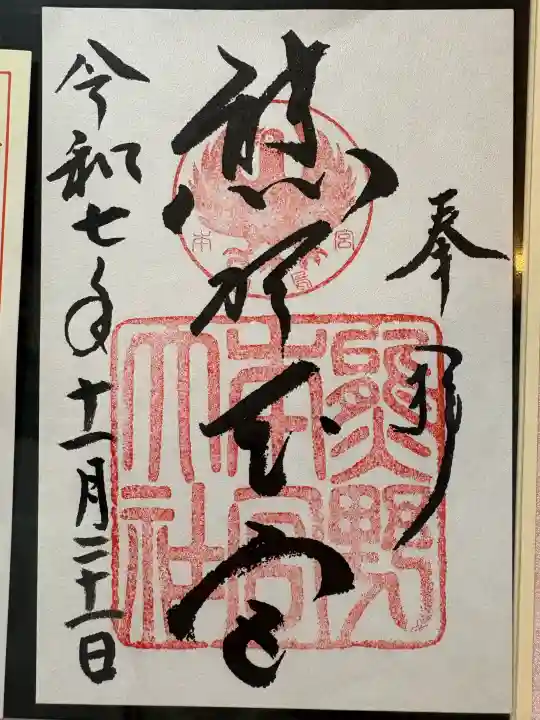 奉拝
熊野本宮
令和七年十一月二十一日
本 宮
熊野
本宮
大社